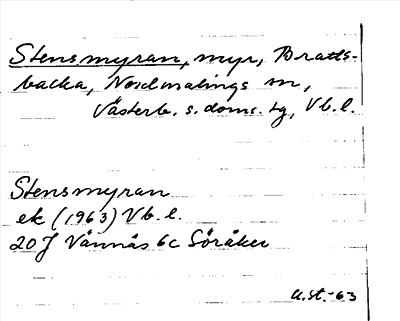 Stensmyran, myr, Bratts-
backa, Nordmalings sn,
Västerb. s. doms. tg, Vb. l.
Stensmyran
ek (1963) Vb. l.
20J Vännäs 6c Söråker
a.st.-63